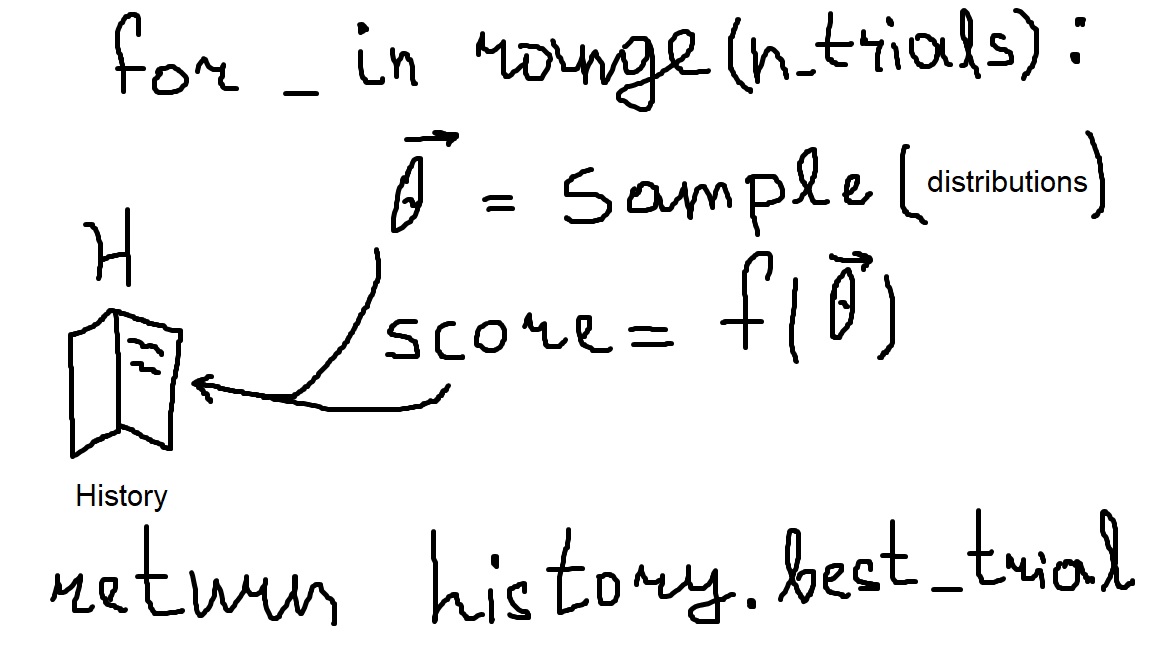 for _ in range(n_trials):
θ⃗ = sample(distributions)
H
score = f(θ⃗)
History
return history.best_trial